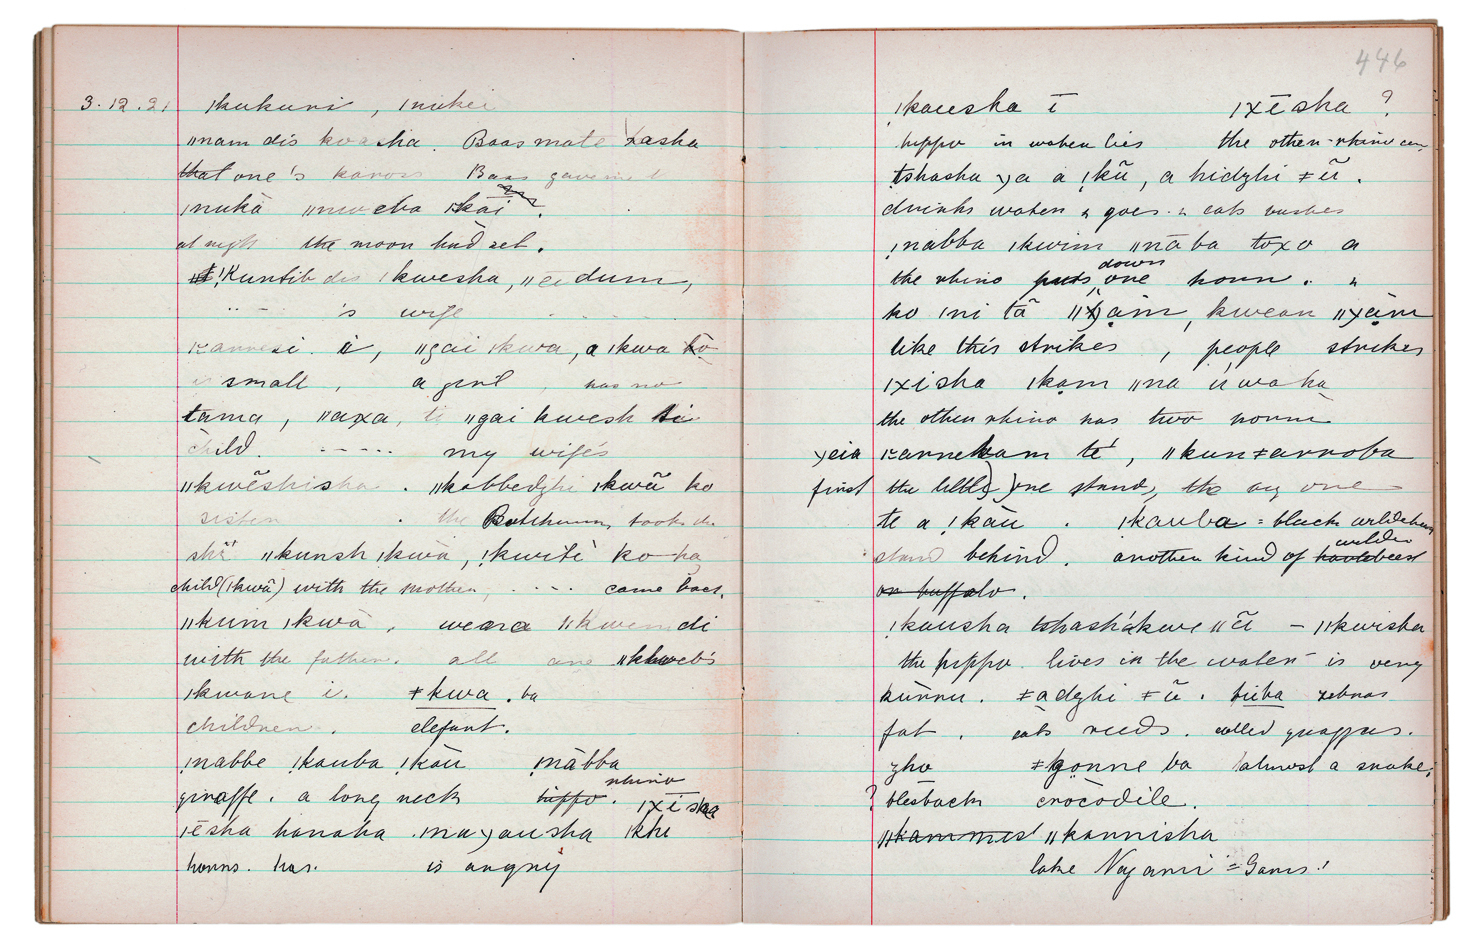 3.12.21 ǀkukuni, ǀnukei
ǁnam dis kwasha. Baas mate xasha
that one's kaross Baas gave me
ǀnukà ǁnweba ǀkāi.
at night the moon had set.
ǃKuntib dis ǀkwesha, ǁei dum,
's wife
ǀkannesi. i, ǁgai ǀkwa, a ǀkwa tō
is small, a girl, has no
tama, ǁaxa, ti ǁgai kwesh ti
child. ----- my wife's
ǁkwēshisha. ǁkabbedzhi ǀkwā ko
sister. the Butchuana took the
shī ǁkunsh ǀkwà, ǃkwitè ko ha
child (ǀkwā) with the mother, ---- came back.
ǁkum ǀkwà, weara ǁkwem di
with the father. all are ǁkhweb's
ǀkwane i. ǂkwa. ba
children. elefant.
ǃnabbe ǃkauba ǃkāu ǃnàbba
giraffe. a long neck hippo. rhino ǀxīsha
ǀēsha hanaha ǀnaɣausha ǀkhi
horns. has. is angry
446
ǃkausha ī ǀxīsha ?
hippo in water lies the other rhino
tshasha ɣa a ǃkū, a hidzhi ǂū.
drinks water & goes & eats bushes
ǃnabba ǀkwim ǁnāba toxo a
the rhino puts down one horn. &
ko ǀni tā ǁɣàm, kwean ǁɣàm
like this strikes, people strikes
ǀxisha ǀkam ǁna ú waha
the other rhino has two horns
ɣeia ǀkannekam té, ǁkunǂarroba
first the little one stand, the big one
te a ǃkāu. ǃkauba = black wildebeest
stand behind. another kind of hartebeest wilde
or buffalo.
ǃkausha tshashákwe ǁū – ǁkwisha
the hippo lives in the water – is very
kūnnu. ǂadzhi ǂū. tiiba zebras
fat. eats reeds. called quaggas.
zho ǂgonne ba (almost a snake.
? blesback crocodile.
ǁkammis ǁkannisha
lake Ngami = Gams!